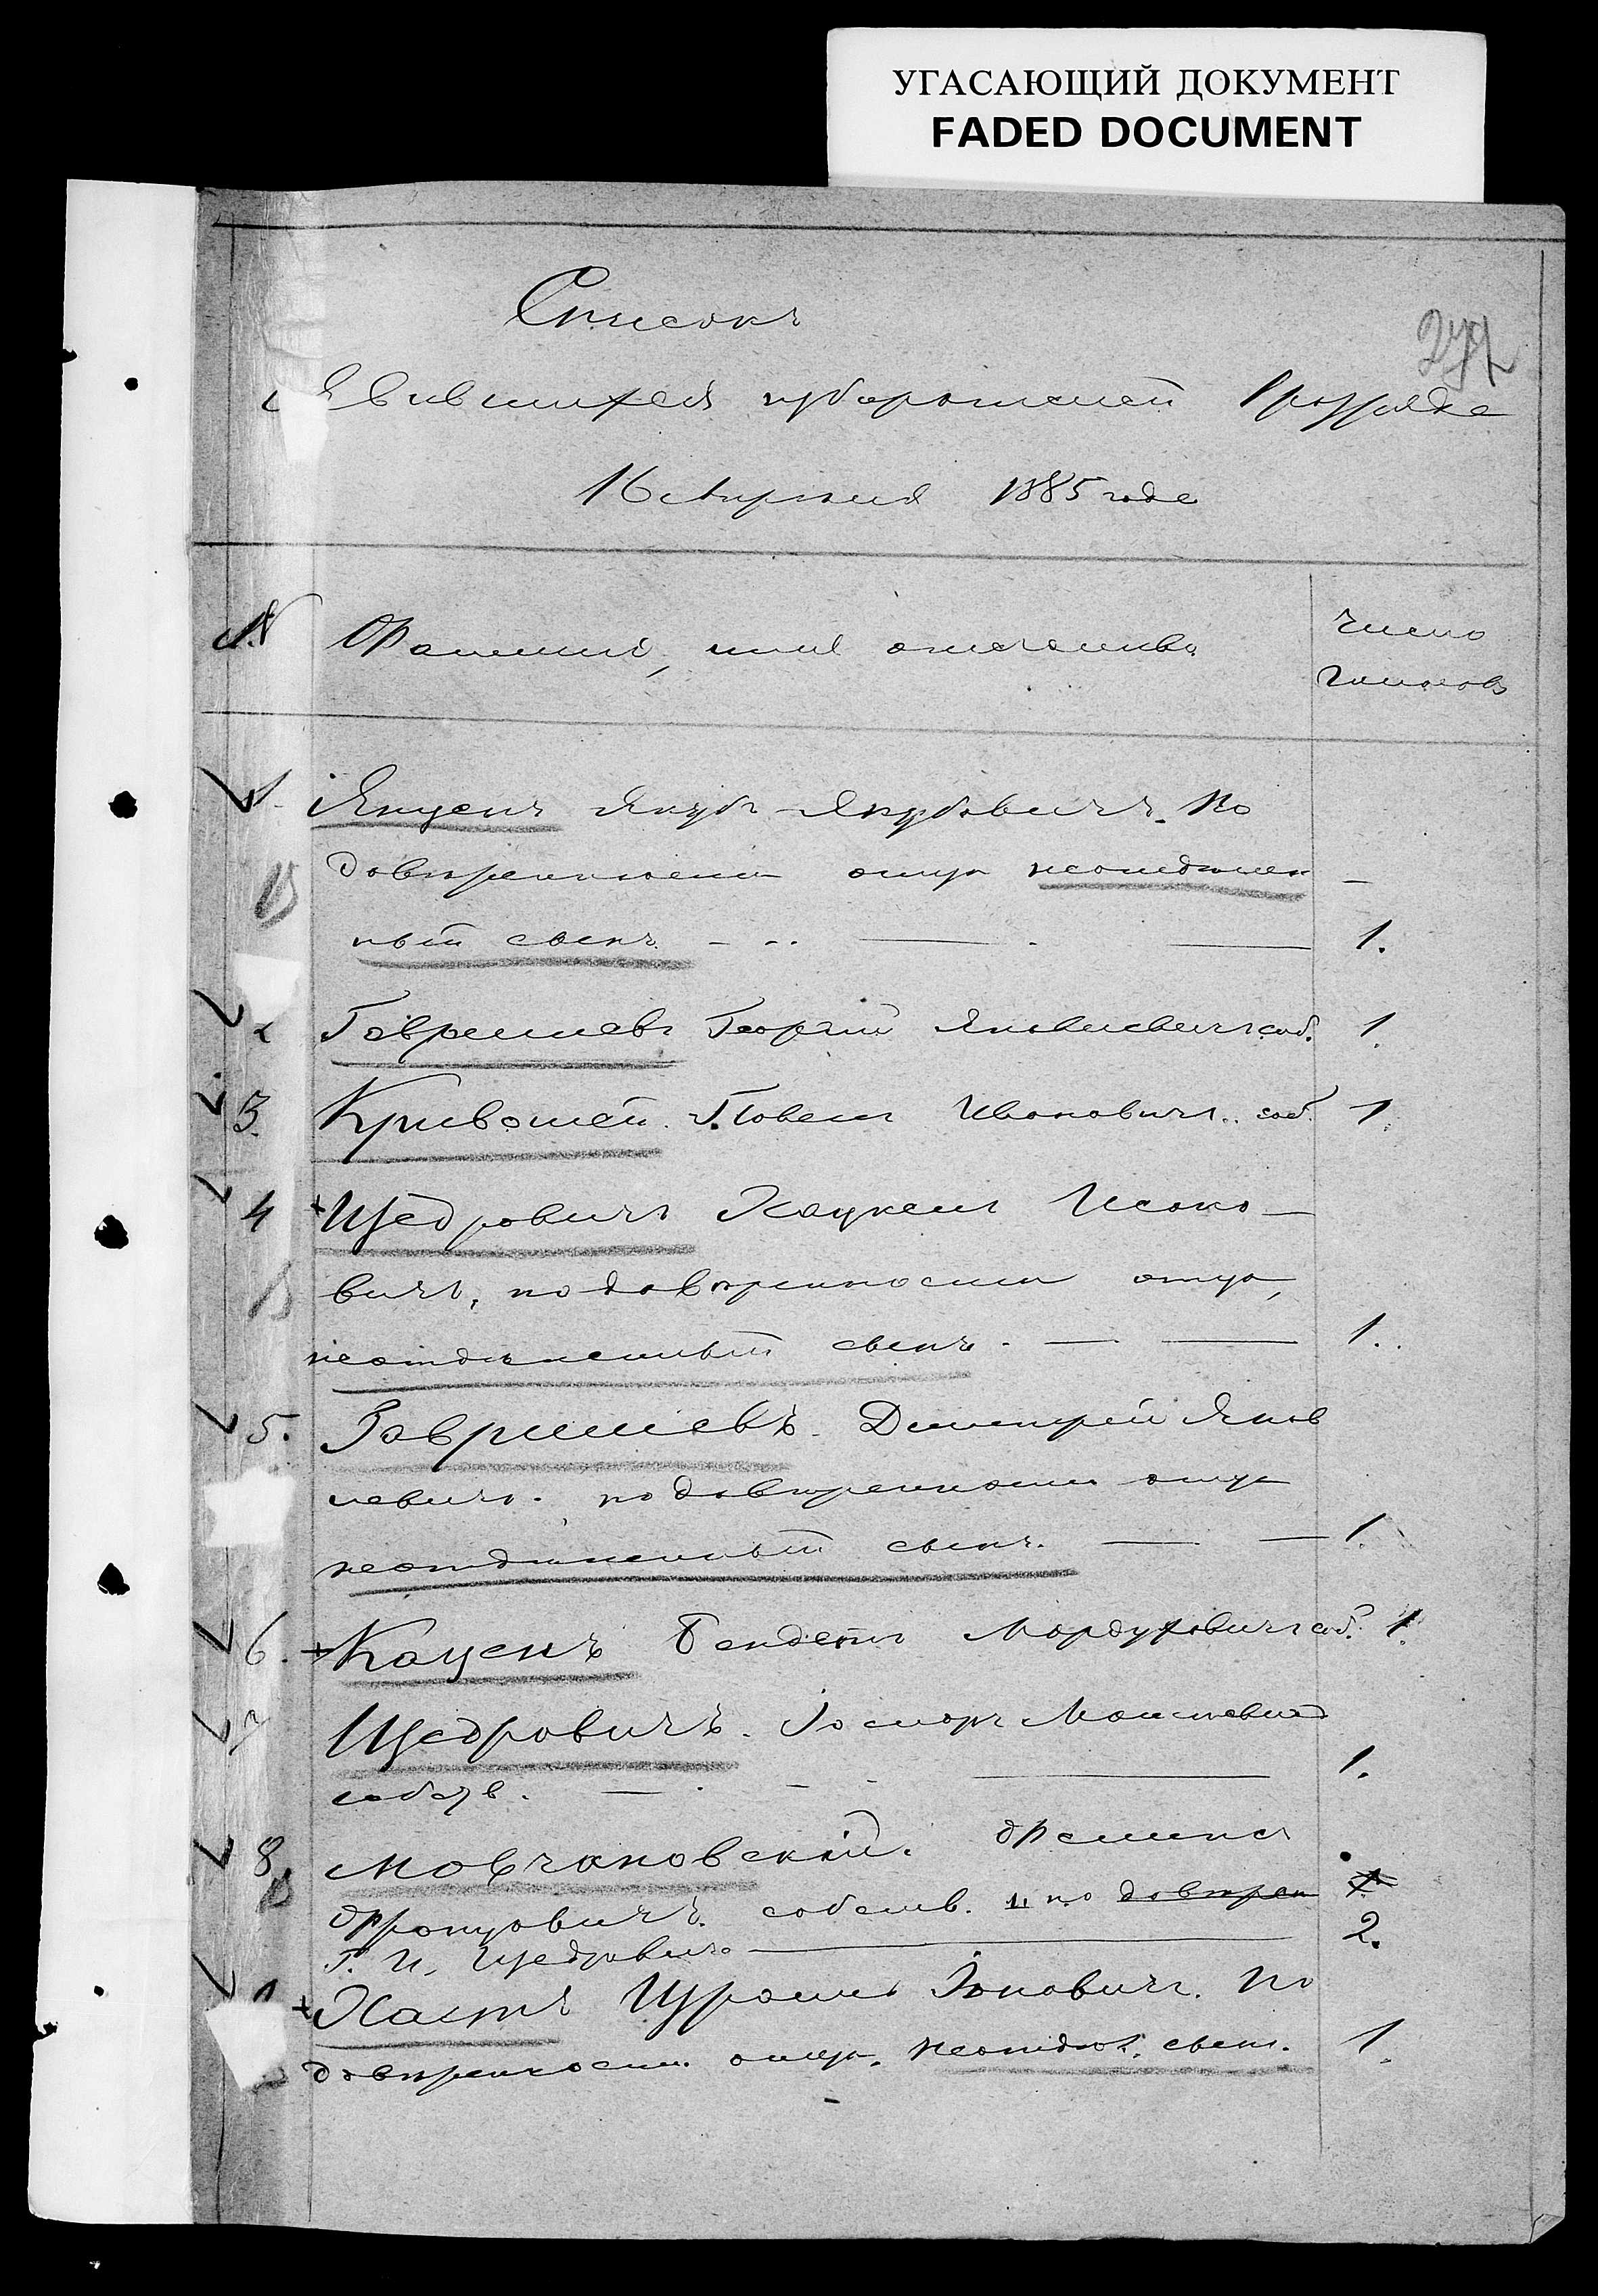 УГАСАЮЩИЙ ДОКУМЕНТ
FADED DOCUMENT
Списокъ
явившихся избирателей I разряда
16 Апреля 1885 года
№ Фамилия, имя отчество число
голосовъ
1. Якубъ Якубовичъ. По
доверенности отца неотделен
ный сынъ. 1.
2 Гавришевъ Георгий Яковлевичъ соб. 1.
3. Кривошей Павелъ Ивановичъ соб. 1.
4 Щедровичъ Хацкель Исако-
вичъ, по доверенности отца,
неотделенный сынъ. 1.
5. Гавришевъ. Дмитрий Яков
левичъ. по доверенности отца
неотделенный сынъ. 1.
6. Каценъ Бендетъ Мордуховичъ соб. 1.
7 Щедровичъ. Мои
собств. 1.
8. Мовчановский. Феликс
Францовичъ. собств. 1. и по доверен 1
Г. И. Щедровича 2.
Хаитъ Шроим Йоновичъ. По
доверенности отца. неотдел. сынъ. 1.